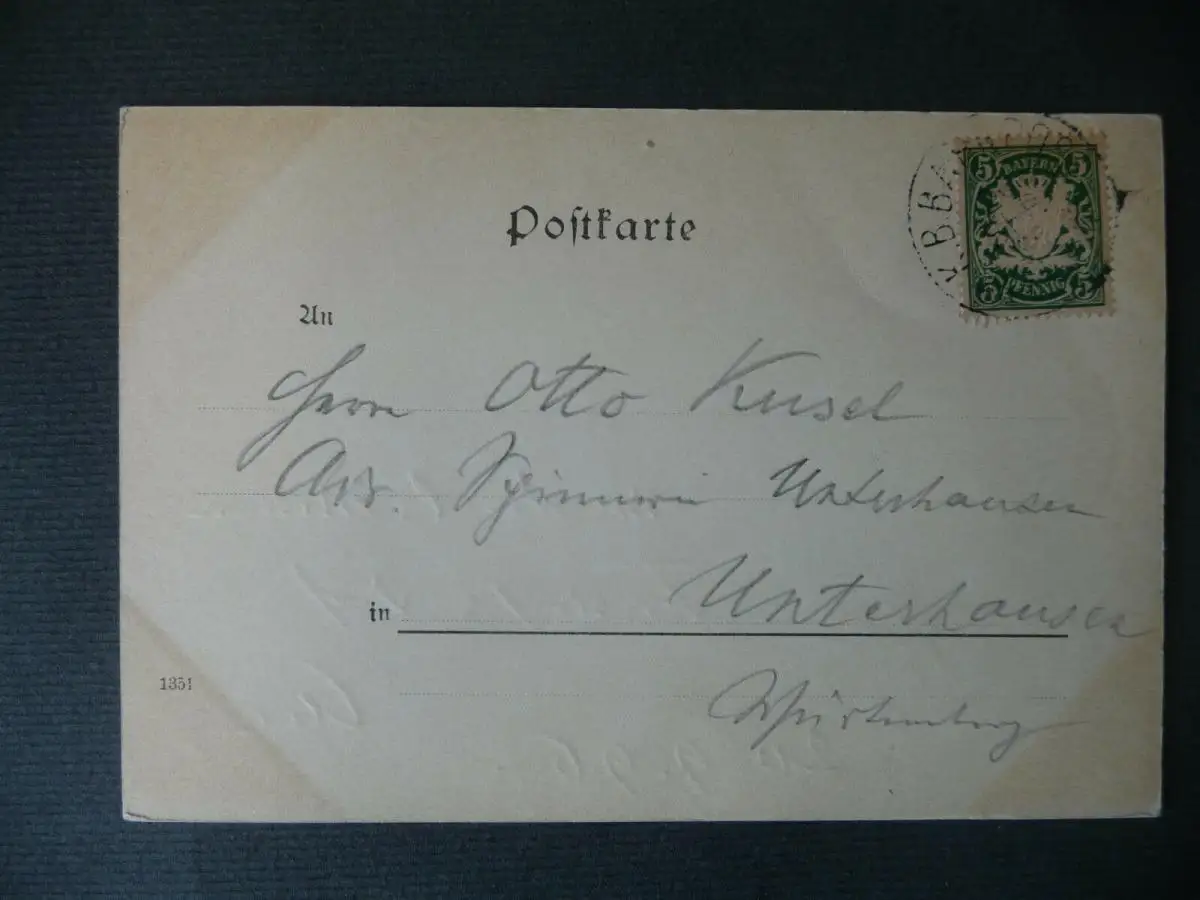 Poſtkarte
5 BAYERN 5
5 PFENNIG 5
An
Herrn Otto Kusel
Adr. Spinnerei Unterhausen
in Unterhausen
1351
Würtemberg